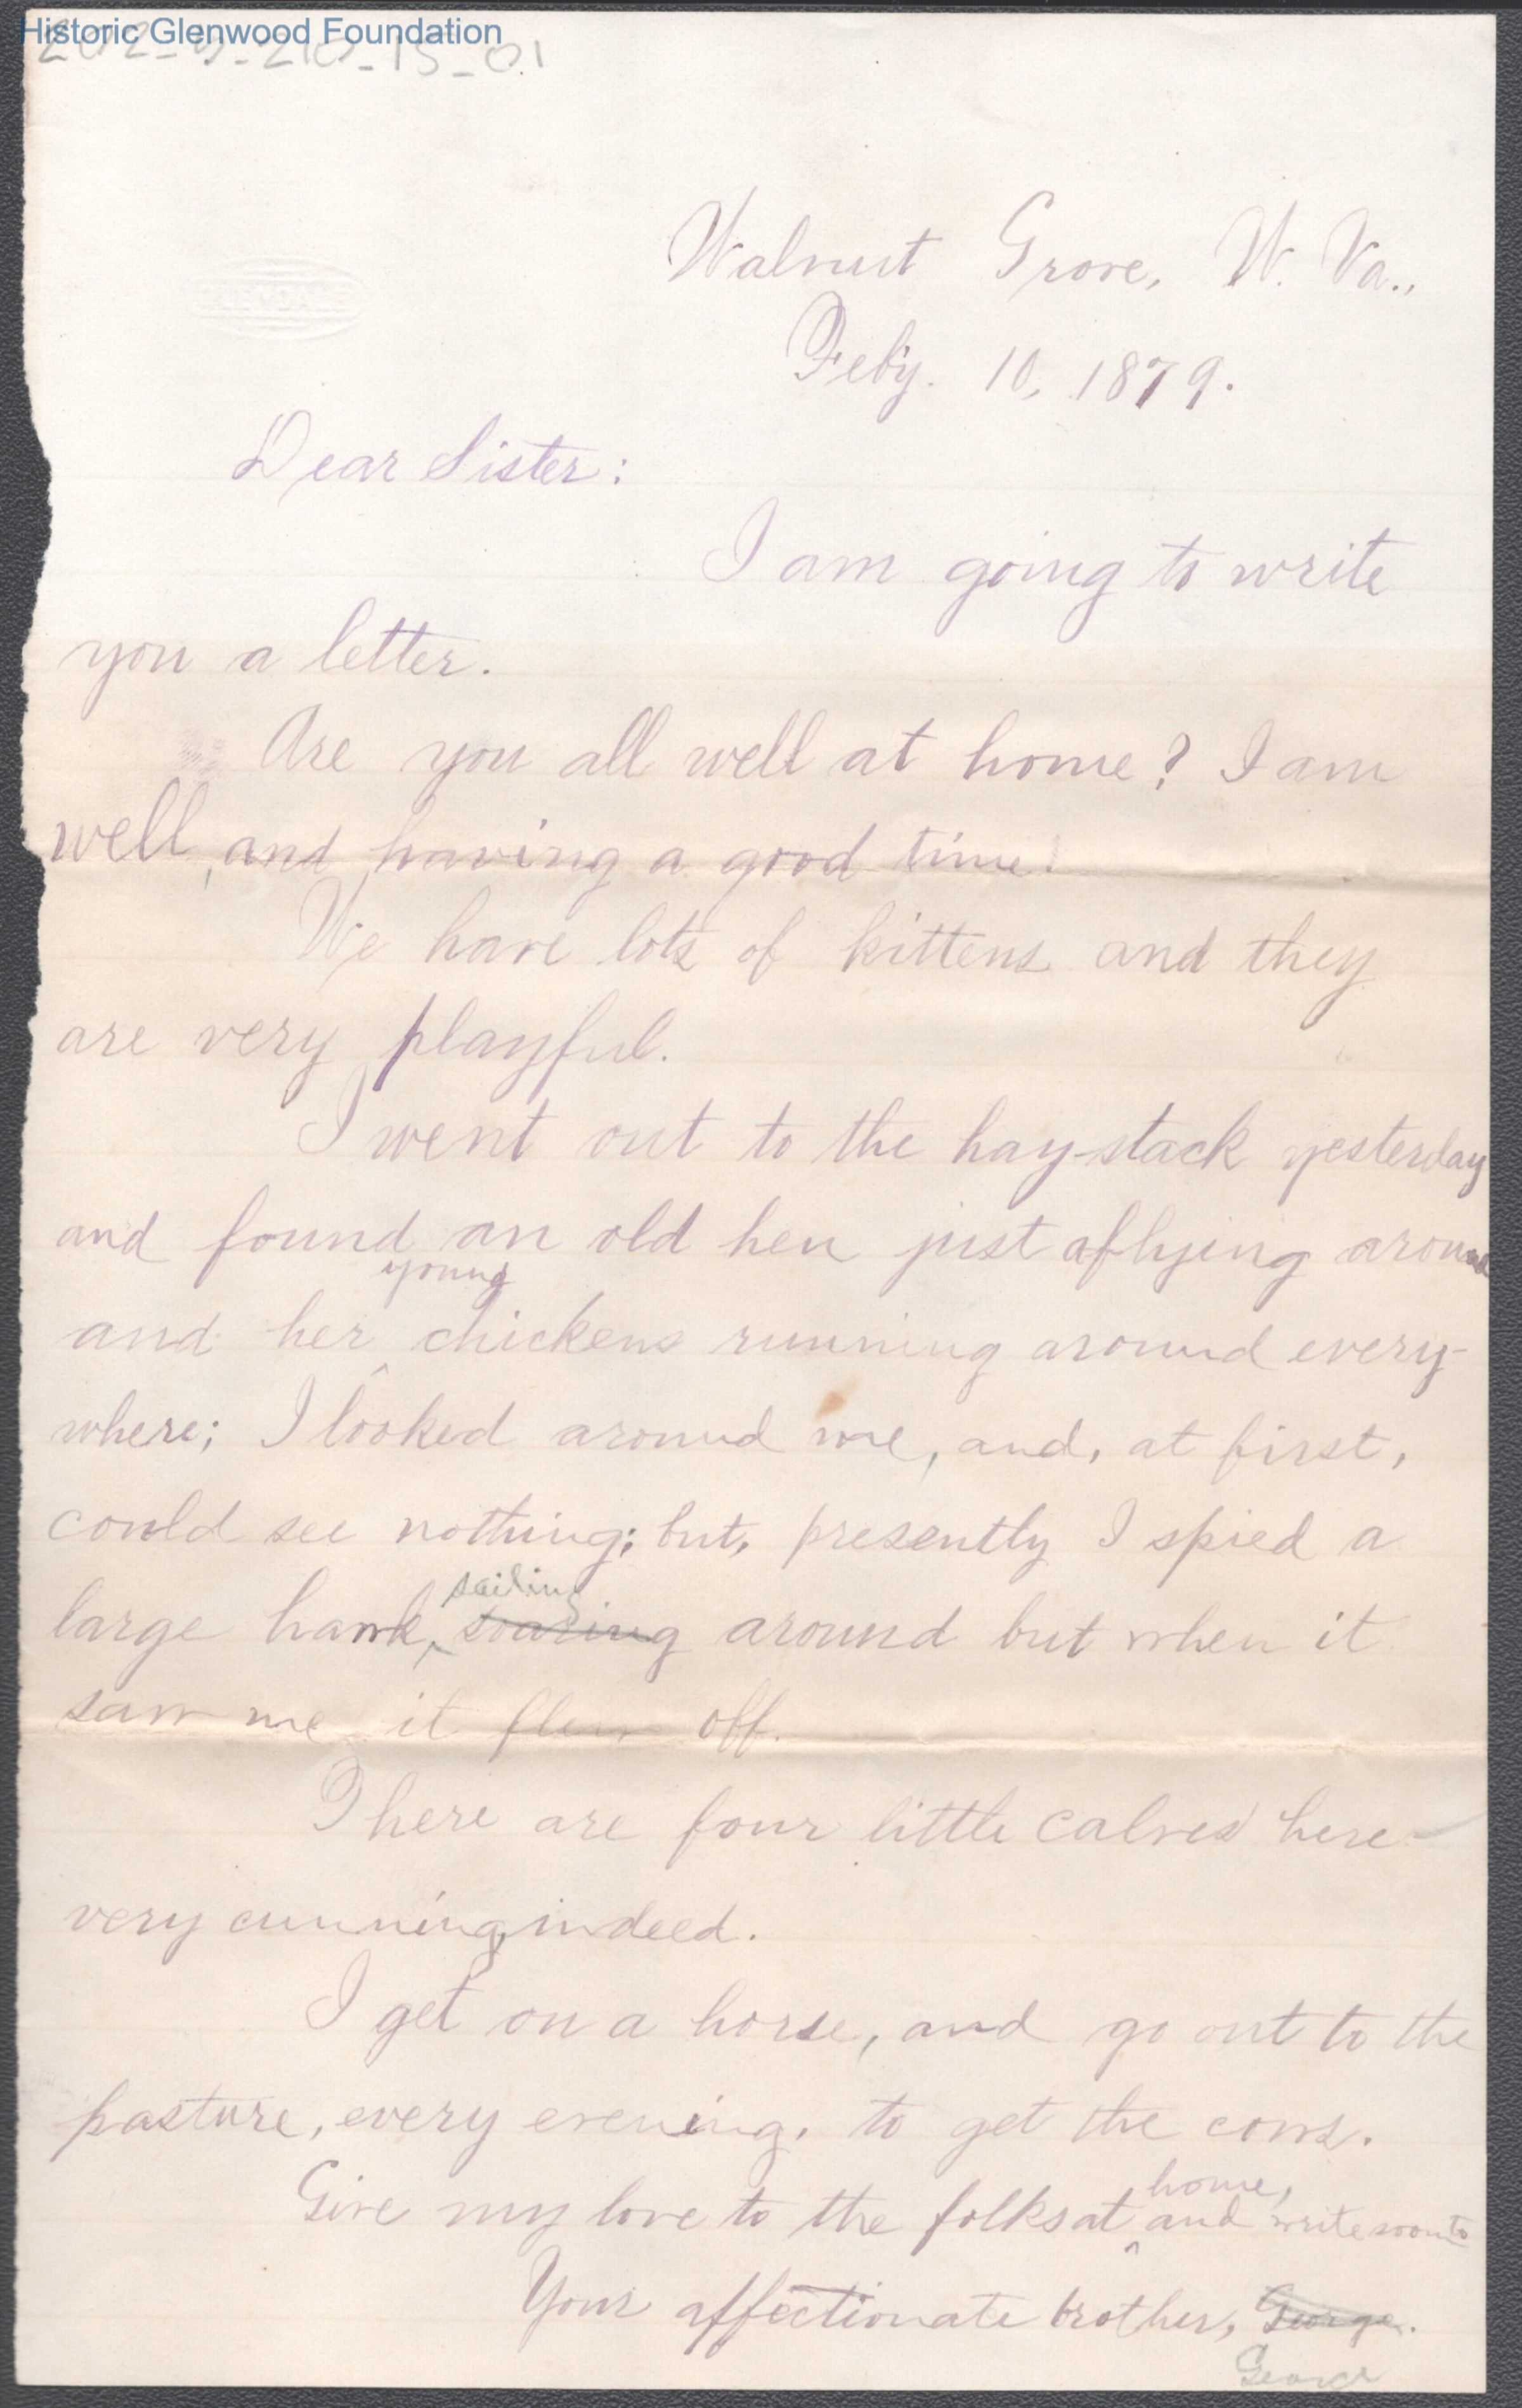 Historic Glenwood Foundation
202-5-210-15-01
Walnut Grove, W. Va.,
Feb'y. 10, 1879.
Dear Sister:
I am going to write
you a letter.
Are you all well at home? I am
well, and having a good time!
We have lots of kittens and they
are very playful.
I went out to the hay-stack yesterday
and found an old hen just aflying around
young
and her ^ chickens running around every-
where; I looked around me, and, at first,
could see nothing; but, presently I spied a
sailing
large hawk, ^ soaring around but when it
saw me it flew off.
There are four little calves here-
very cunning, indeed.
I get on a horse, and go out to the
pasture, every evening, to get the cows.
home,
Give my love to the folks at ^ and write soon to
Your affectionate brother, George.
George